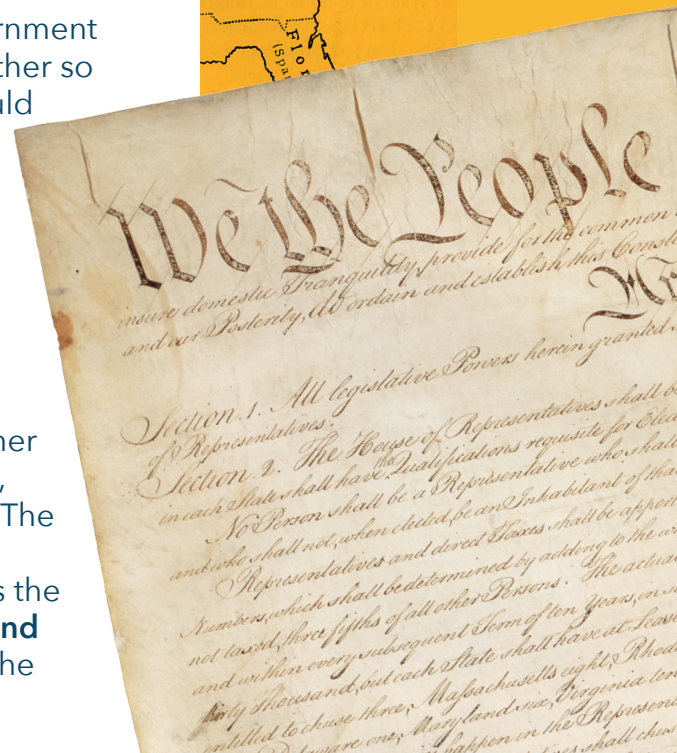 rnment
ther so
uld
Flor
(Spa
We the People
insure domestic Tranquility, provide for the common
and our Posterity, do ordain and establish this Const
Section. 1. All legislative Powers herein granted
of Representatives.
Section. 2. The House of Representatives shall be
in each State shall have the Qualifications requisite for Elec
No Person shall be a Representative who shall
and who shall not, when elected, be an Inhabitant of that
Representatives and direct Taxes shall be apport
Numbers, which shall be determined by adding to the
not taxed, three fifths of all other Persons. The actua
and within every subsequent Term of ten Years, in
thirty Thousand, but each State shall have at Leas
entitled to chuse three, Massachusetts eight, Rhod
aware one, Maryland six, Virginia ten
happen in the Represen
shall chus
her
,
The
s the
nd
he